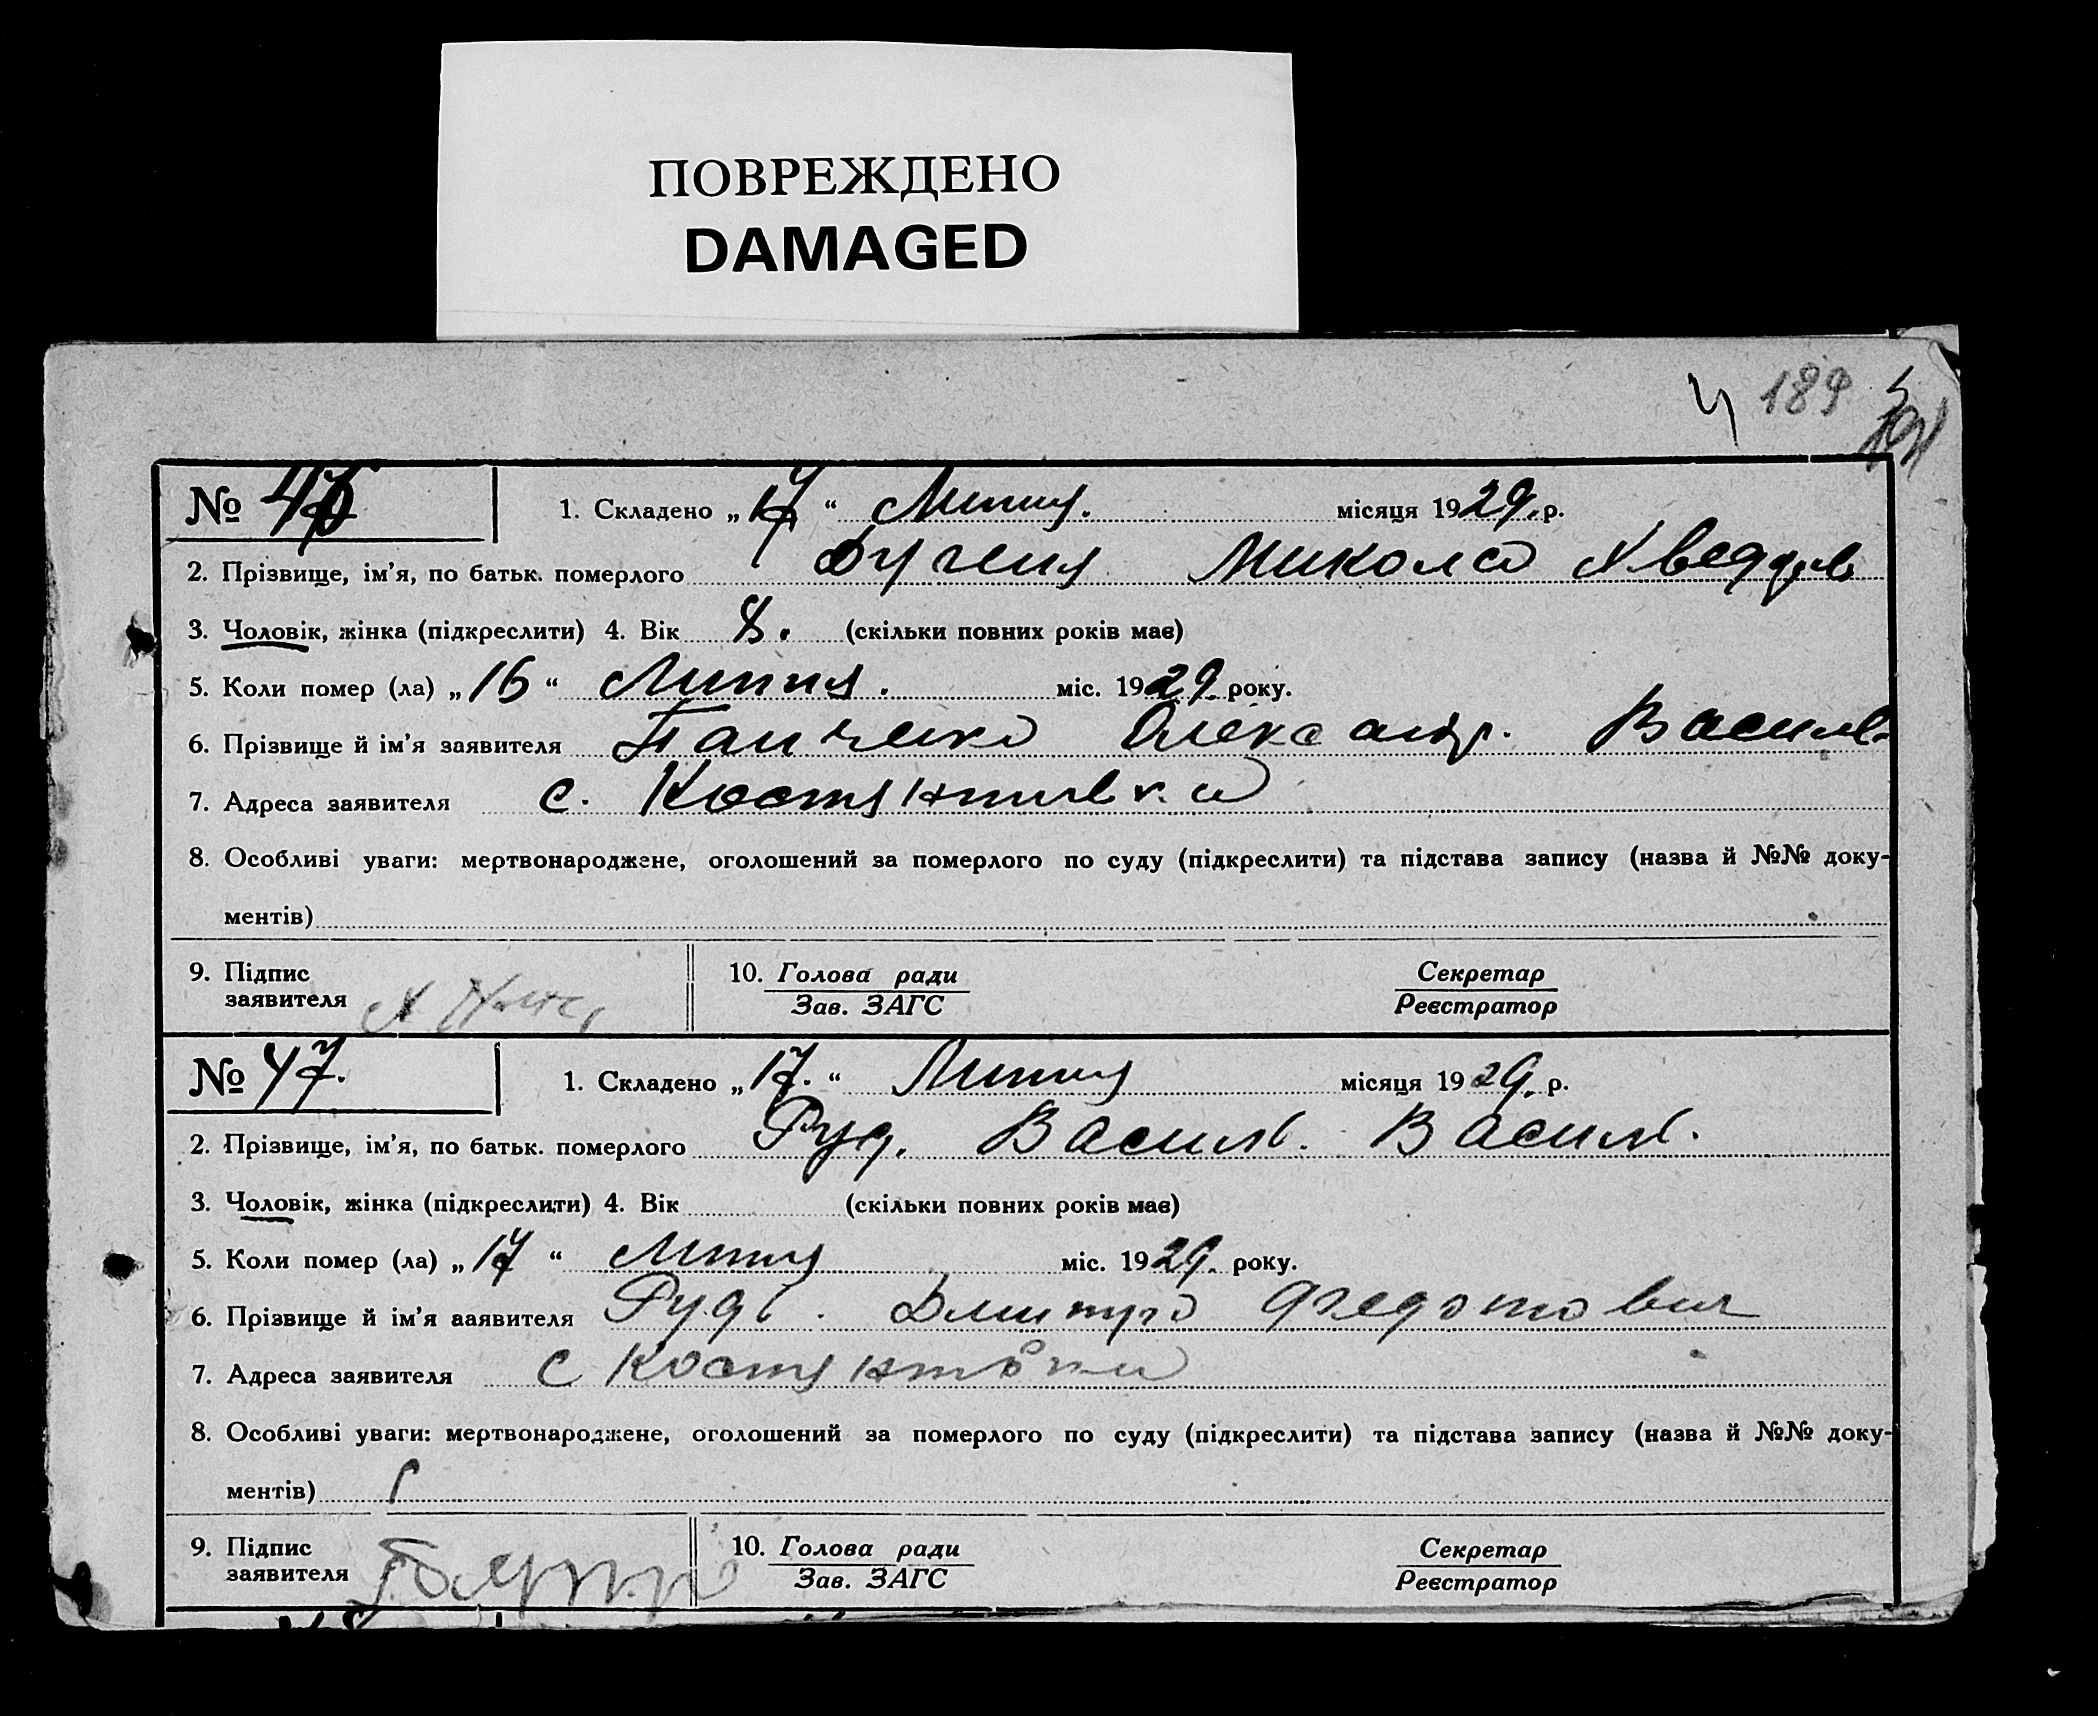 ПОВРЕЖДЕНО
DAMAGED
189
№ 1. Складено „17“ Липня. місяця 1929. р.
2. Прізвище, ім’я, по батьк. померлого Микола Хведор.
3. Чоловік, жінка (підкреслити) 4. Вік 8. (скільки повних років має)
5. Коли помер (ла) „16“ Липня. міс. 1929. року.
6. Прізвище й ім’я заявителя Панченко Олександр. Васильов.
7. Адреса заявителя с. Костянтинівка
8. Особливі уваги: мертвонароджене, оголошений за померлого по суду (підкреслити) та підстава запису (назва й №№ доку-
ментів)
9. Підпис 10. Голова ради Секретар
заявителя Зав. ЗАГС Реєстратор
№ 47. 1. Складено „17.“ Липня місяця 1929. р.
2. Прізвище, ім’я, по батьк. померлого Рудь. Василь. Василь.
3. Чоловік, жінка (підкреслити) 4. Вік (скільки повних років має)
5. Коли помер (ла) „17“ Липня міс. 1929. року.
6. Прізвище й ім’я заявителя Рудь. Дмитро Федотович
7. Адреса заявителя с
8. Особливі уваги: мертвонароджене, оголошений за померлого по суду (підкреслити) та підстава запису (назва й №№ доку-
ментів)
9. Підпис 10. Голова ради Секретар
заявителя Зав. ЗАГС Реєстратор